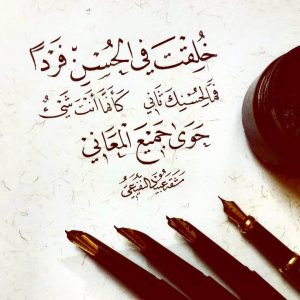 خُلِقْتَ فِي الْحُسْنِ فَرْداً
فَمَا لِحُسْنِكَ ثَانِي كَأَنَّمَا أَنْتَ شَيْءٌ
حَوَى جَمِيعَ الْمَعَانِي
مشقه